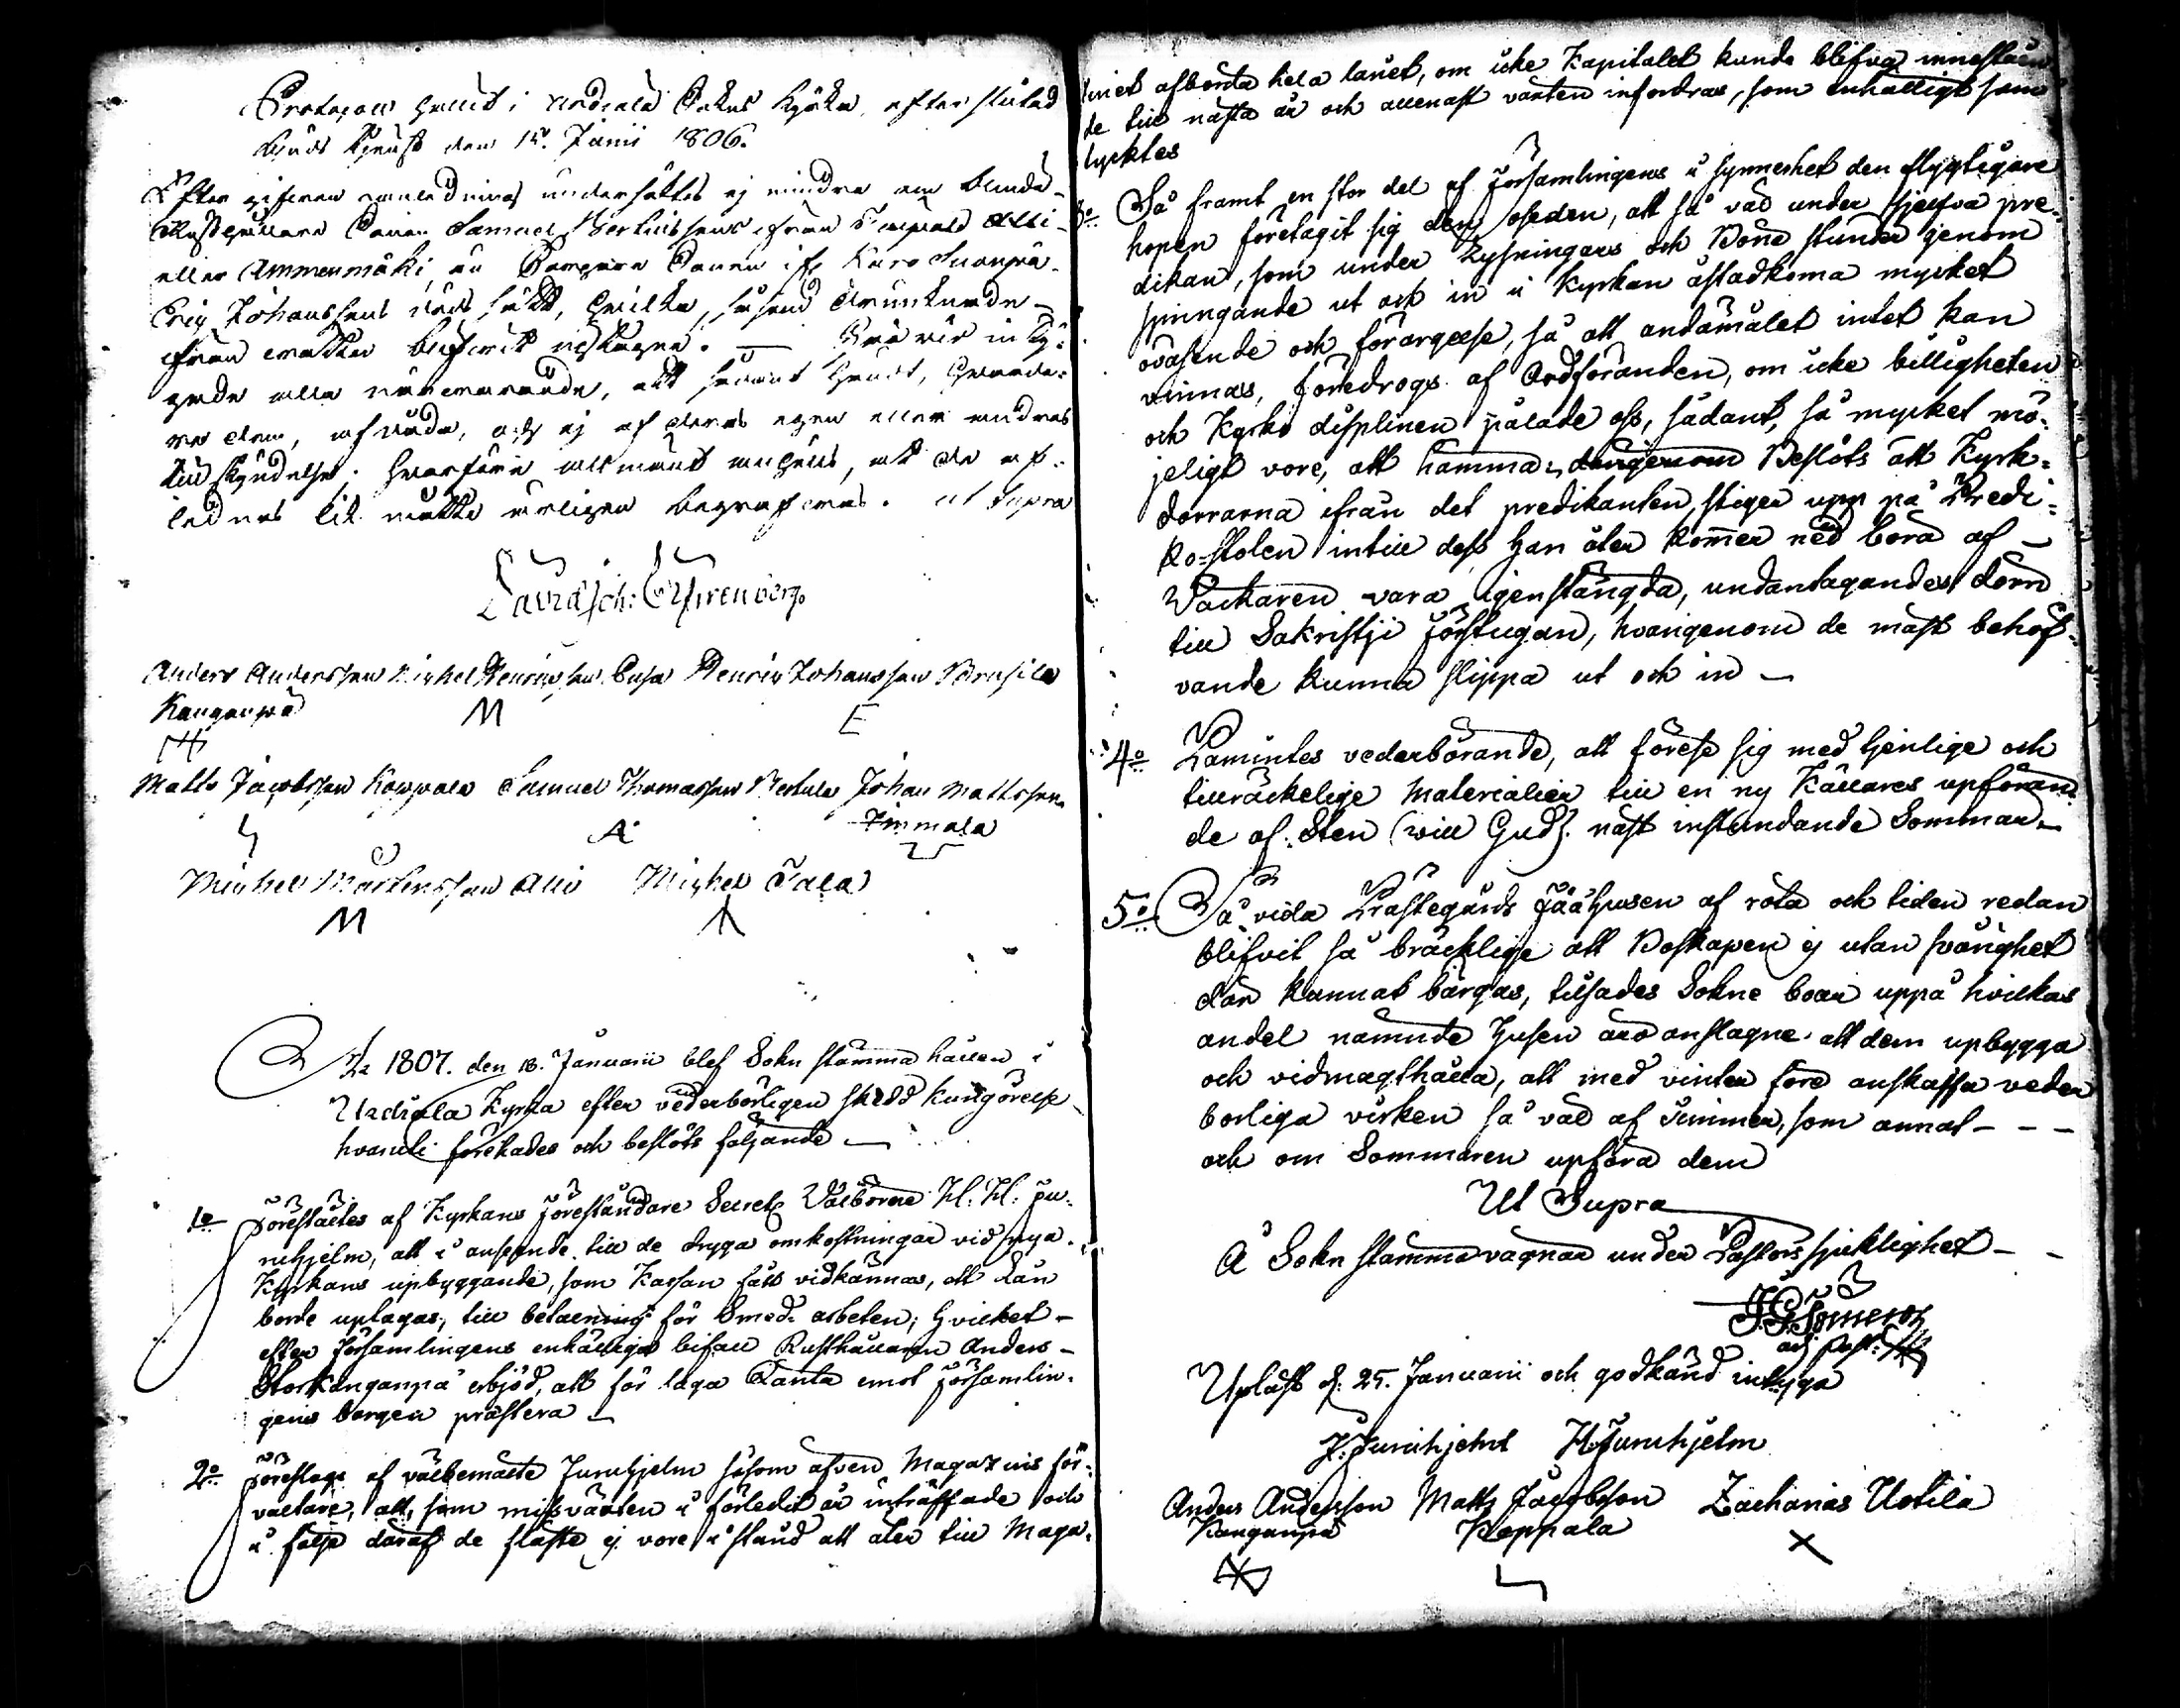 Protocoll hållit i Urdiala Sokns Kyrka, efter slutad
Guds tjenst den 15. Junii 1806.
Efter gifven anledning undersöktes ej mindre om bonde-
eller Ammenmäki, än
Eric Johanssons död skedt, hvilka, såsom drunknade
ifrån vattnet blifvit uptagne. —
gade alla närvarande, att sådant händt,
re dem, af våda, och ej af deras egen eller andras
tilskyndelse. Hvarföre allmänt anhölls, at de af-
lednas lik måtte ärligen begrafvas. ut Supra
Anders Andersson Michel Henricsson Henric Johansson
Kanganpä M E
Matts Jacobsson Koppala Samuel Thomasson Johan Mattsson
A Jimmala
Michel Mårtensson Alli Michel Tala
M
År 1807. den 18. Januarii blef Sokn stämma hållen i
Urdiala Kyrka efter vederbörligen skedd kungörelse
hvaruti förehades och beslöts följande —
1o Förestältes af Kyrkans Föreståndare Secret. Välborne H. H. Fu-
ruhjelm, att i anseende till de dryga omkostningar vid nya
Kyrkans upbyggande, som Kassan fått vidkännas, ett Lån
borde uptagas, till betalning för Smed arbeten, hvilket -
efter Församlingens enhälliga bifall Rusthållaren Anders -
Storkanganpä erbjöd, att för laga Ränta emot Församlin-
gens borgen prästera —
2o Föreslogs af välbemälte Furuhjelm såsom äfven Magazins för-
valtare, att, som missväxten i förledit år inträffade och
i följe däraf de fläste ej vore i stånd att åter till Maga-
zinet afbörda hela lånet, om icke Kapitalet kunde blifva innestäen-
de till nästa år och allenast växten infordras, som enhälligt sam-
tycktes
3o Så framt en stor del af Församlingens i synnerhet den flygtigare
hopen företagit sig den oseden, att så väl under sjelfva pre-
dikan, som under Lysningars och Böne stunder genom
springande ut och in i Kyrkan åstadkoma mycket
oväsende och förargelse, så att andamålet intet kan
vinnas, föredrogs af Ordföranden, om icke billigheten
och Kyrko displinen pålade oss, sådant, så mycket mö-
jeligt vore, att hämma, Beslöts att Kyrk-
dörrarna ifrån det predikanten stiger upp på Predi-
ko-stolen intill dess han åter kommer ned böra af -
Väcktaren vara igenstängda, undantagandes dörrn
till Sakristji Förstugan, hvarigenom de mäst behöf-
vande kunna slippa ut och in —
4o Påmintes vederbörande, att förese sig med tjenlige och
tillräckelige Materialier till en ny Källares upföran-
de af Sten (will Gud) näst instundande Sommar —
5o Så vida Prästegårds Fäähusen af röta och tiden redan
blifvit så bräcklige att Boskapen ej utan svårighet
där kunnat bärgas, tilsades Sokne boar uppå hvilkas
andel nämnde Husen äro anslagne att dem upbygga
och vidmagthålla, att med vinter före anskaffa veder
börliga virken så väl af Timmer, som annat - - -
och om Sommaren upföra dem
Ut Supra
Å Sokn stämma vägnar under Pastors sjuklighet - -
adj. Past:
Upläst d. 25. Januarii och godkänd intyga
J. Furuhjelm H Furuhjelm
Anders Andersson Matts Jacobsson Zacharias Uotila
Kanganpä Koppala X